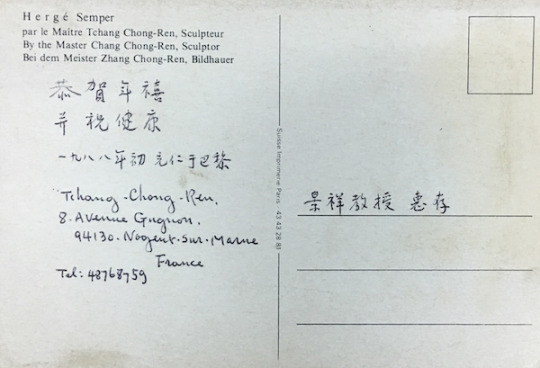 Hergé Semper
par le Maître Tchang Chong-Ren, Sculpteur
By the Master Chang Chong-Ren, Sculptor
Bei dem Meister Zhang Chong-Ren, Bildhauer
恭賀年禧
并祝健康
一九八八年初 充仁于巴黎
Tchang-Chong-Ren.
8. Avenue Gugnon.
94130-Nogent-Sur-Marne
France
Tel: 48768759
Suisse Imprimerie Paris 43 43 28 81
景祥教授 惠存